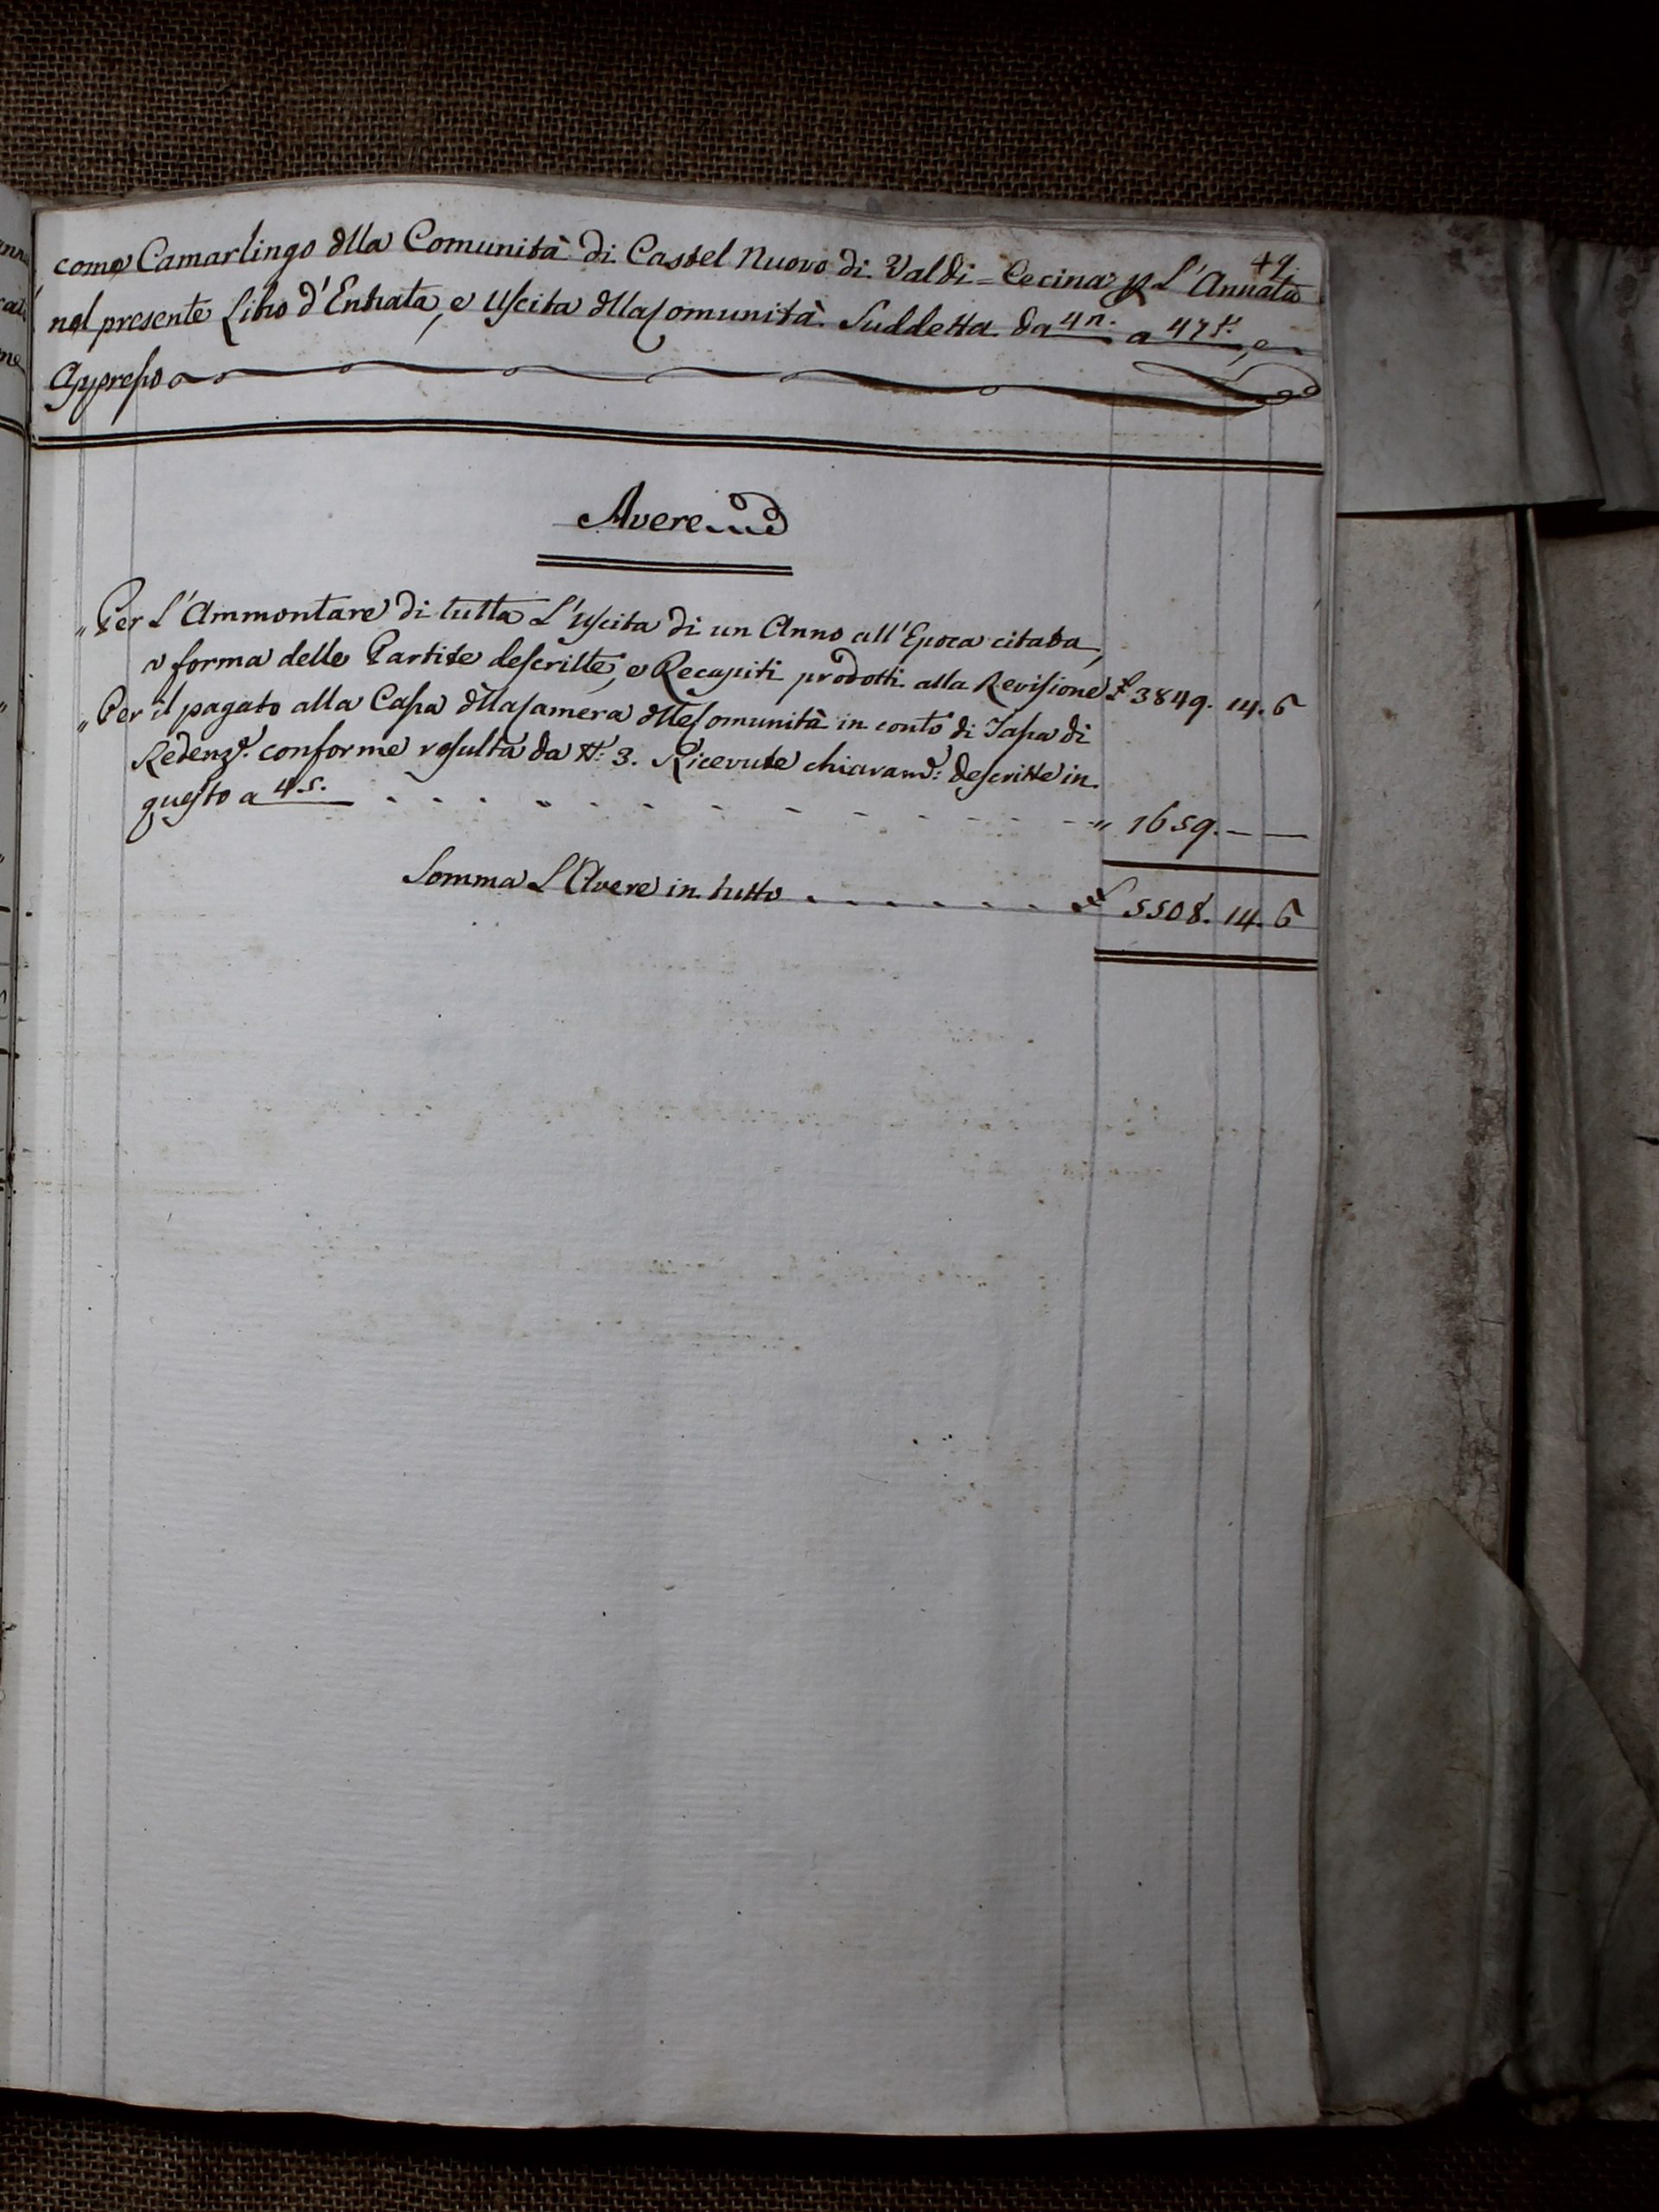 49.
come Camarlingo dlla Comunità di Castel Nuovo di Valdi=Cecina p L'Annata
nel presente Libro d'Entrata, e Uscita dlla Comunità Suddetta da 4n. a 47t., e
Appresso
Avere
"Per L'Ammontare di tutta L'Uscita di un Anno all'Epoca citata,
a forma delle Partite descritte, e Recapiti prodotti alla Revisione £ 3849. 14. 6
"Per il pagato alla Cassa dlla Camera dlle Comunità in conto di Tassa di
Redenze. conforme resulta da N: 3. Ricevute chiaram: descritte in
questo a 45. " 1659. — —
Somma L'Avere in tutto £ 5508. 14. 6